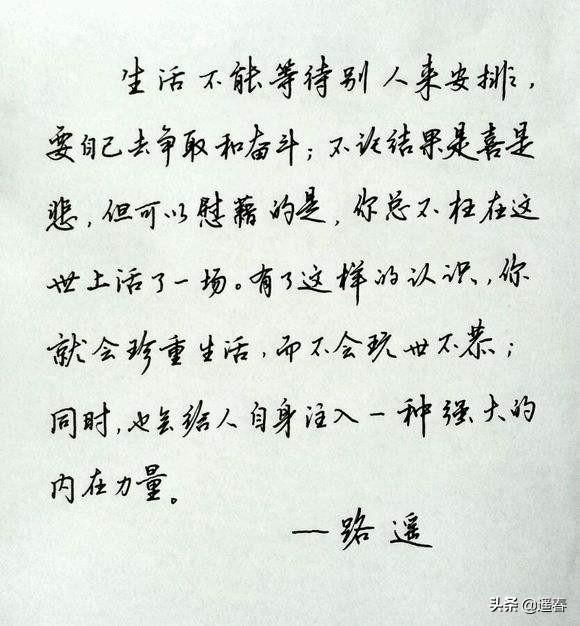 生活不能等待别人来安排，
要自己去争取和奋斗；不论结果是喜是
悲，但可以慰藉的是，你总不枉在这
世上活了一场。有了这样的认识，你
就会珍重生活，而不会玩世不恭；
同时，也会给人自身注入一种强大的
内在力量。
—路遥
头条 @遥春